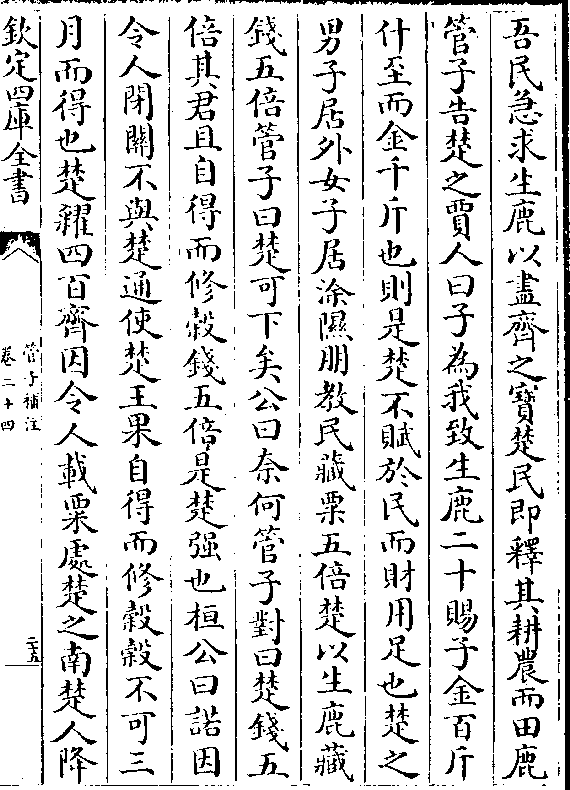 吾民急求生鹿以盡齊之寶楚民即釋其耕農而田鹿
管子告楚之賈人曰子為我致生鹿二十賜子金百斤
什至而金千斤也則是楚不賦於民而財用足也楚之
男子居外女子居涂隰朋教民藏粟五倍楚以生鹿藏
錢五倍管子曰楚可下矣公曰奈何管子對曰楚錢五
倍其君且自得而修穀錢五倍是楚强也桓公曰諾因
令人閉關不與楚通使楚王果自得而修穀穀不可三
月而得也楚糴四百齊因令人載粟處楚之南楚人降
欽定四庫全書
管子補注
卷二十四
二十五